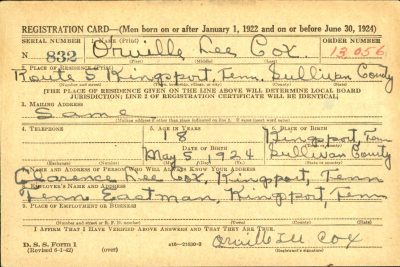 REGISTRATION CARD—(Men born on or after January 1, 1922 and on or before June 30, 1924)
SERIAL NUMBER 1. NAME (Print) ORDER NUMBER
N 832 Orville Lee Cox 13 056
(First) (Middle) (Last)
2. PLACE OF RESIDENCE (Print)
Route 5 Kingsport, Tenn. Sullivan County
[THE PLACE OF RESIDENCE GIVEN ON THE LINE ABOVE WILL DETERMINE LOCAL BOARD
JURISDICTION; LINE 2 OF REGISTRATION CERTIFICATE WILL BE IDENTICAL]
3. MAILING ADDRESS
Same
4. TELEPHONE 5. AGE IN YEARS 6. PLACE OF BIRTH
18 Kingsport, Tenn
DATE OF BIRTH
May 5 1924 Sullivan County
(Exchange) (Number) (Mo.) (Day) (Yr.) (State or country)
7. NAME AND ADDRESS OF PERSON WHO WILL ALWAYS KNOW YOUR ADDRESS
Clarence Lee Cox, Kingport, Tenn
8. EMPLOYER'S NAME AND ADDRESS
Tenn Eastman, Kingport, Tenn
9. PLACE OF EMPLOYMENT OR BUSINESS
(Number and street or R. F. D. number) (Town) (County) (State)
I AFFIRM THAT I HAVE VERIFIED ABOVE ANSWERS AND THAT THEY ARE TRUE.
D. S. S. Form 1
(Revised 6-1-42) (over) Orville Lee Cox
(Registrant's signature)